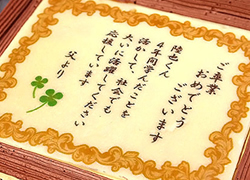 ご卒業
おめでとう
ございます
陸也くん
4年間学んだことを
活かして、社会でも
大いに活躍してください
応援しています
父より